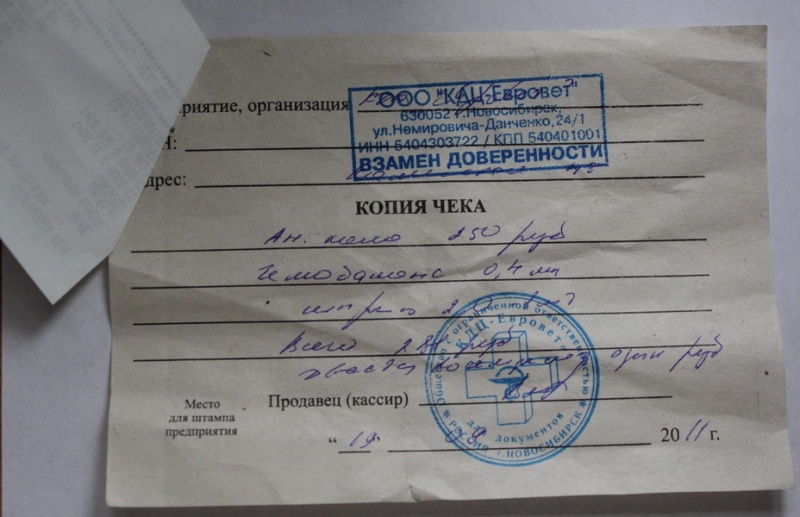 риятие, организация
ООО "КДЦ-Евровет"
630052 г.Новосибирск,
ул.Немировича-Данченко,24/1
ИНН 5404303722 / КПП 540401001
ВЗАМЕН ДОВЕРЕННОСТИ
Н:
дрес:
КОПИЯ ЧЕКА
Ан. кала 250 руб
Гемобаланс 0,4 мл
шприц
Всего руб
двести восемьдесят один руб
Общество с ограниченной ответственностью
КДЦ-Евровет
для документов
РОССИЯ г.НОВОСИБИРСК
Место
для штампа
предприятия
Продавец (кассир)
"19" 09 2011 г.